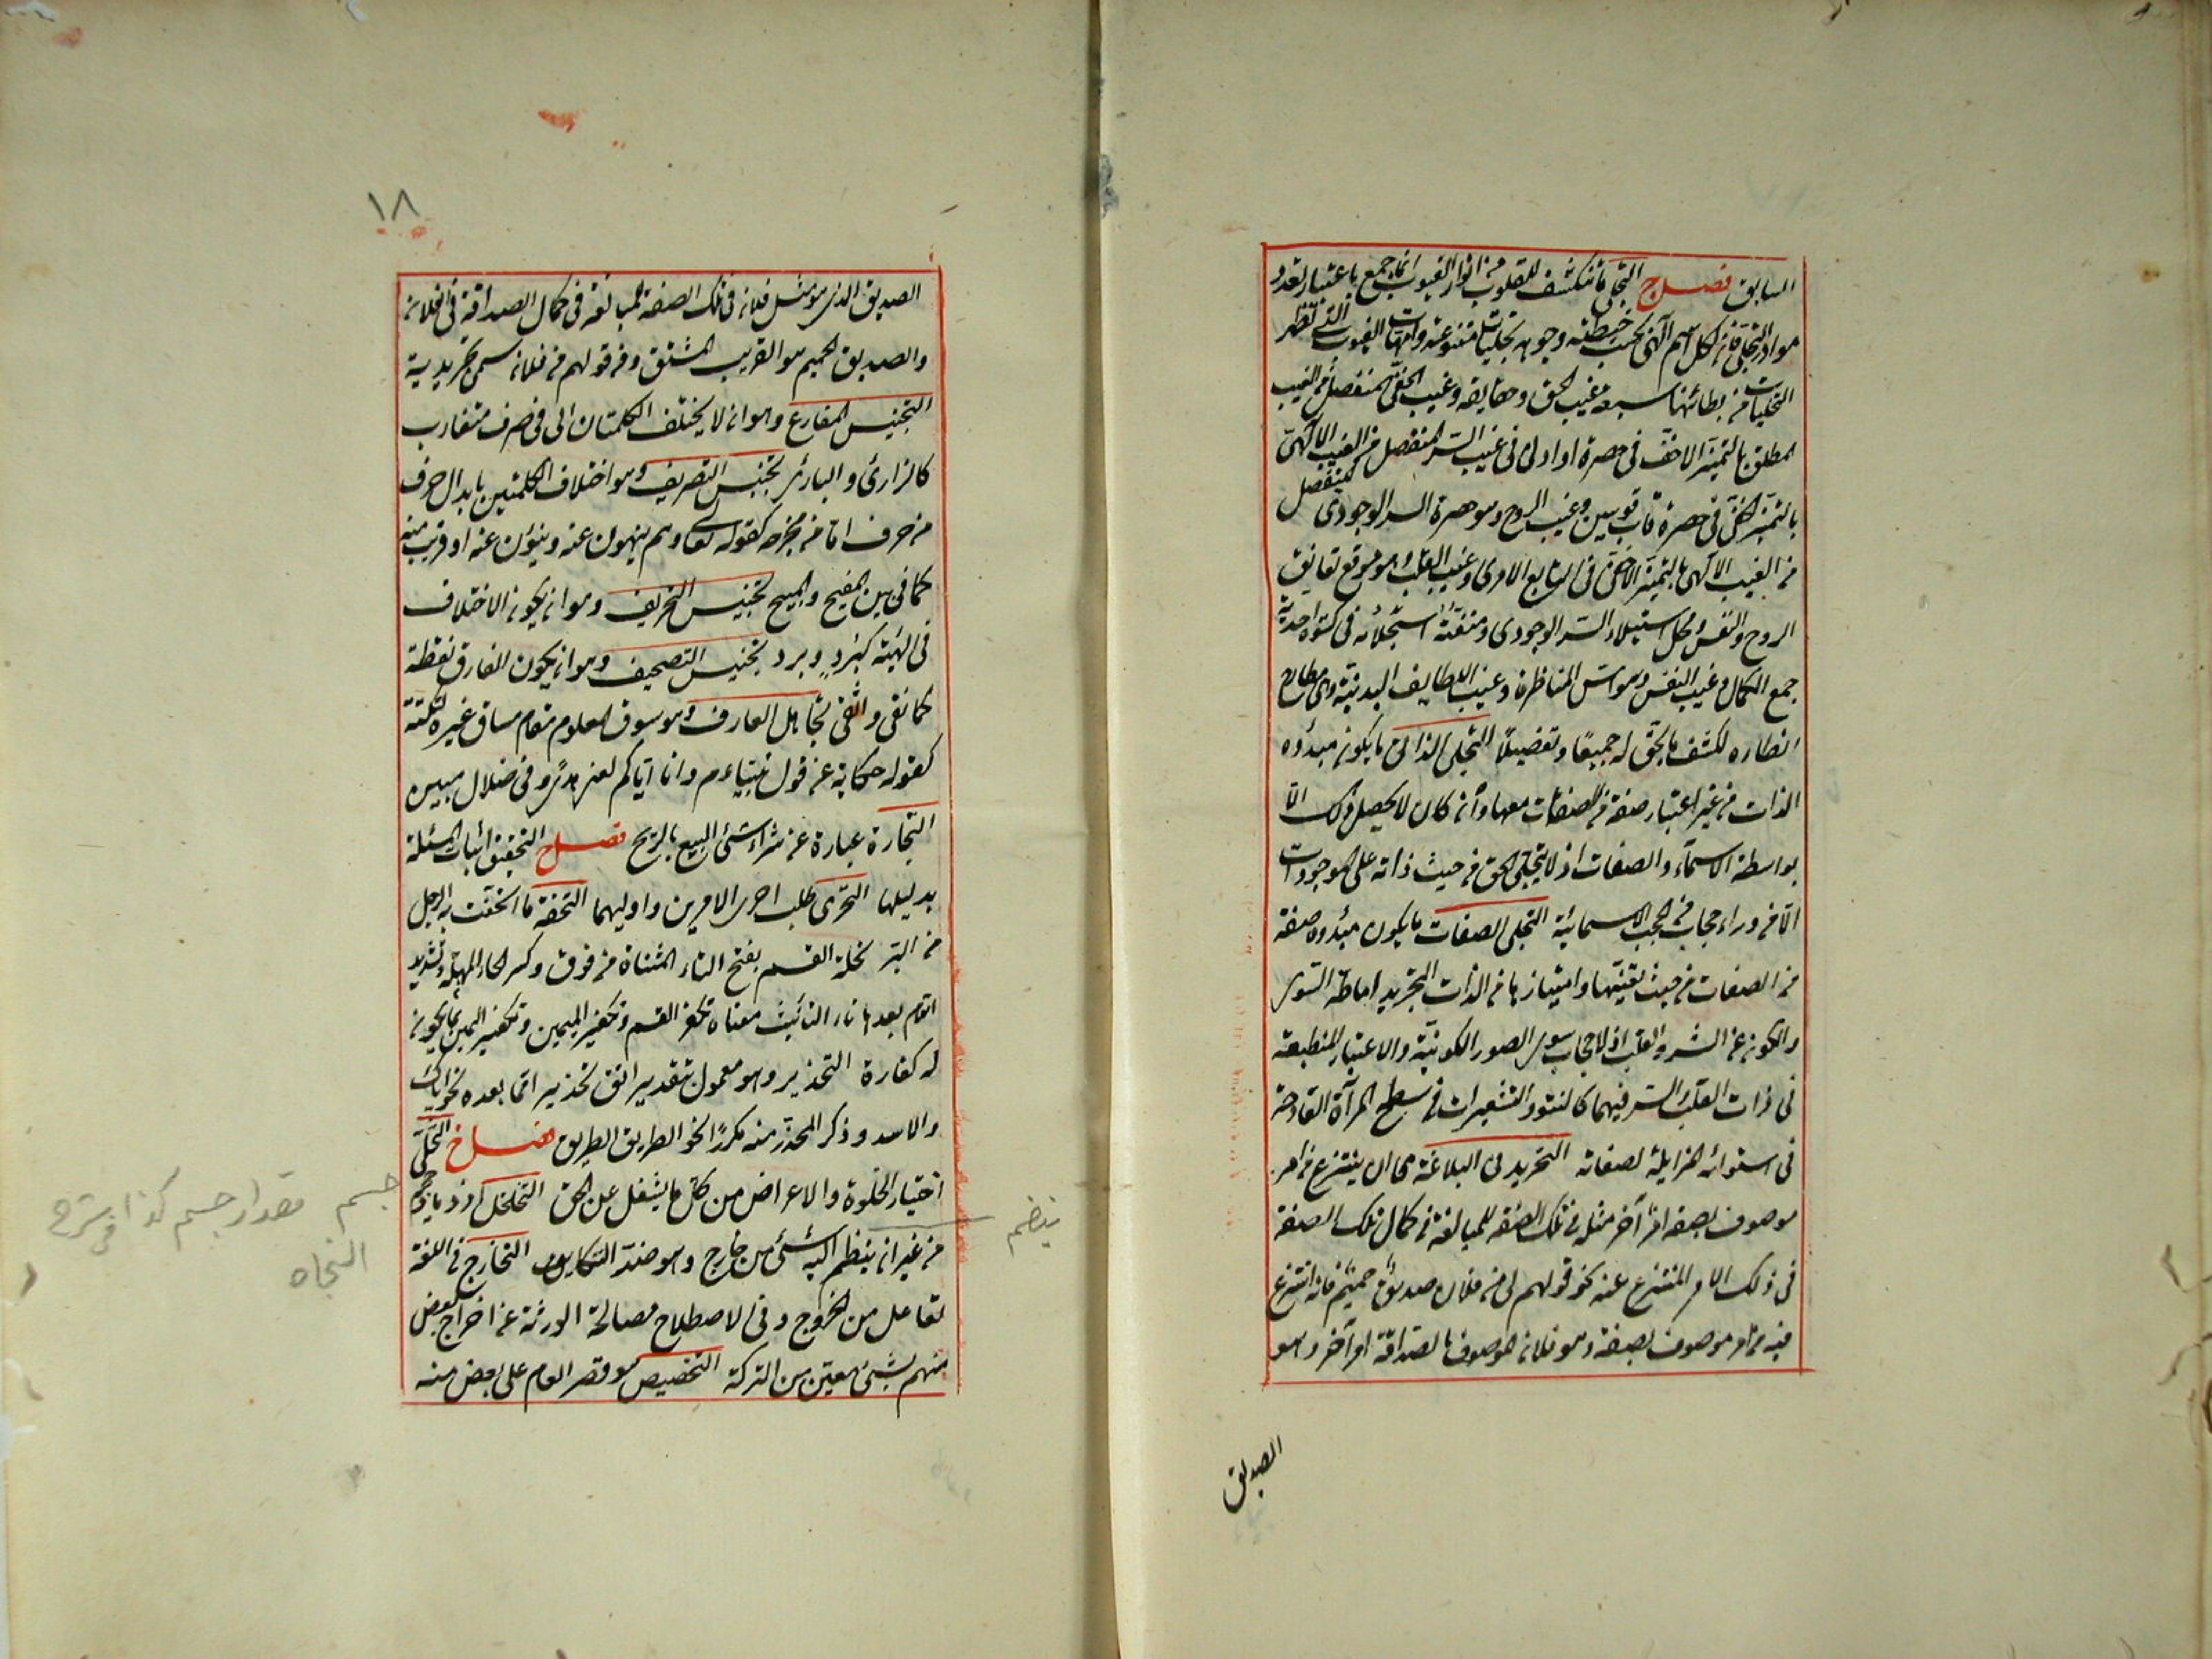 السابق فصل ج التجلي ما ينكشف للقلوب من انوار الغيوب انما جمع باعتبار تعدد
موارد التجلي فان لكل اسم الهي بحسب حيطته ووجوهه تجليات متنوعة وامهات الغيوب التي تظهر
التجليات من بطائنها سبعة غيب الحق وحقايقه وغيب الخفي المنفصل من الغيب
المطلق بالتميز الاخفى في حضرة او ادنى وغيب السر المنفصل من الغيب الالهي
بالتميز الخفي في حضرة قاب قوسين وغيب الروح وهو حضرة السر الوجودي المنفصل
من الغيب الالهي بالتميز الاخفى في التابع الامري وغيب القلب وهو موقع تعانق
الروح والنفس ومحل استيلاد السر الوجودي ومنصة استجلائه في كسوة احدية
جمع الكمال وغيب النفس وهو انس المناظرة وغيب اللطايف البدنية وهي مطارح
انظاره لكشف ما يحق له جمعًا وتفصيلًا التجلي الذاتي ما يكون مبدؤه
الذات من غير اعتبار صفة من الصفات معها وان كان لا يحصل ذلك الا
بواسطة الاسماء والصفات اذ لا يتجلى الحق من حيث ذاته على الموجودات
الا من وراء حجاب من الحجب الاسمائية التجلي الصفات ما يكون مبدؤه صفة
من الصفات من حيث تعينها وامتيازها من الذات التجريد اماطة السوى
والكون عن السر والقلب اذ لا حجاب سوى الصور الكونية والاغيار المنطبعة
في ذات القلب والسر فيهما كالنتوء والتشعيرات في سطح المرآة القادحة
في استوائه المزايلة لصفائه التجريد في البلاغة هي ان ينتزع من امر
موصوف بصفة امر آخر مثله في تلك الصفة للمبالغة في كمال تلك الصفة
في ذلك الامر المنتزع عنه نحو قولهم لي من فلان صديق حميم فانه انتزع
فيه من امر موصوف بصفة وهو فلان الموصوف بالصداقة امر آخر وهو
الصديق
١٨
الصديق الذي هو مثل فلان في تلك الصفة للمبالغة في كمال الصداقة في فلان
والصديق الحميم هو القريب المشفق ومن قولهم من فلان سمى تجريدية
التجنيس المضارع وهو ان لا يختلف الكلمتان الى في حرف متقارب
كالزارئ والبارئ تجنيس التصريف وهو اختلاف الكلمتين بابدال حرف
من حرف اما من مخرجه كقوله تعالى وهم ينهون عنه وينئون عنه او قريب منه
كما في بين المفيح والمبيح تجنيس التحريف وهو ان يكون الاختلاف
في الهيئة كبُرد وبرد تجنيس التصحيف وهو ان يكون الفارق نقطة
كما نقى واتقى تجاهل العارف وهو سوق المعلوم مقام مساق غيره لنكتة
كقوله حكاية عن قول نبينا عم وانا او اياكم لعلى هدى او في ضلال مبين
التجارة عبارة عن شراء شئ للبيع بالربح فصل ح التحقيق اثبات المسئلة
بدليلها التحرى طلب احرى الامرين واوليهما التحفة ما اتحفت به الرجل
من البر تحلة القسم بفتح التاء المثناة من فوق وكسر الحاء المهملة وتشديد
اللام بعدها تاء التأنيث معناه تكفر القسم وتكفير اليمين وتكفير اليمين بما يكون
له كفارة التحذير وهو معمول بتقدير اتق تحذير اتما بعده نحو اياك
والاسد وذكر المحذر منه مكررًا نحو الطريق الطريق فصل خ التخلي
اختيار الخلوة والاعراض من كل ما يشغل عن الحق التخلخل ازدياد حجم
من غير ان ينضم اليه شئ من خارج وهو ضد التكاثف التخارج في اللغة
تفاعل من الخروج وفي الاصطلاح مصالحة الورثة عن اخراج بعض
منهم بشئ معين من التركة التخصيص هو قصر العام على بعض منه
جسم مقدار جسم كذا في شرح
النجاه
ينضم